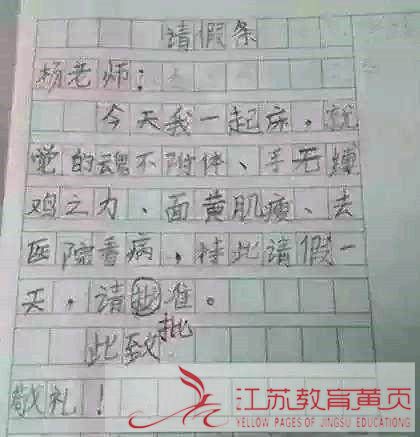 请假条
杨老师：
今天我一起床，就
觉的魂不附体、手无缚
鸡之力、面黄肌瘦、去
医院看病，特此请假一
天，请批准。
批
此致
敬礼！
江苏教育黄页
YELLOW PAGES OF JINGSU EDUCATIONG